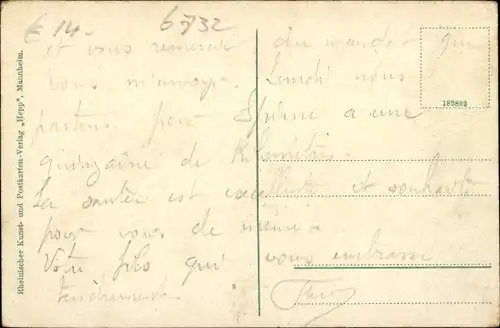 € 14.- 6732
et vous remercie du mandat que
vous m'envoyez. Lundi nous
partons pour a une
quinzaine de Kilomètres.
La santée est excellente et souhaite
pour vous de même.
Votre fils qui vous embrasse
tendrement.
182892
Rheinischer Kunst- und Postkarten-Verlag „Hepp", Mannheim.